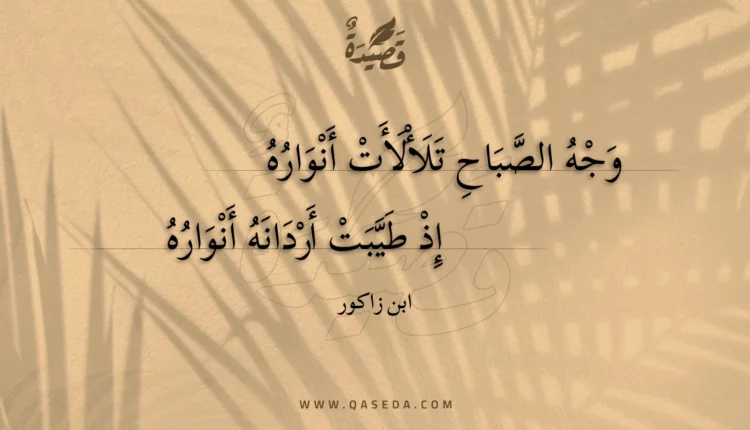 قَصِيْدَةٌ
وَجْهُ الصَّبَاحِ تَلَأْلَأَتْ أَنْوَارُهُ
إِذْ طَيَّبَتْ أَرْدَانَهُ أَنْوَارُهُ
ابن زاكور
WWW.QASEDA.COM